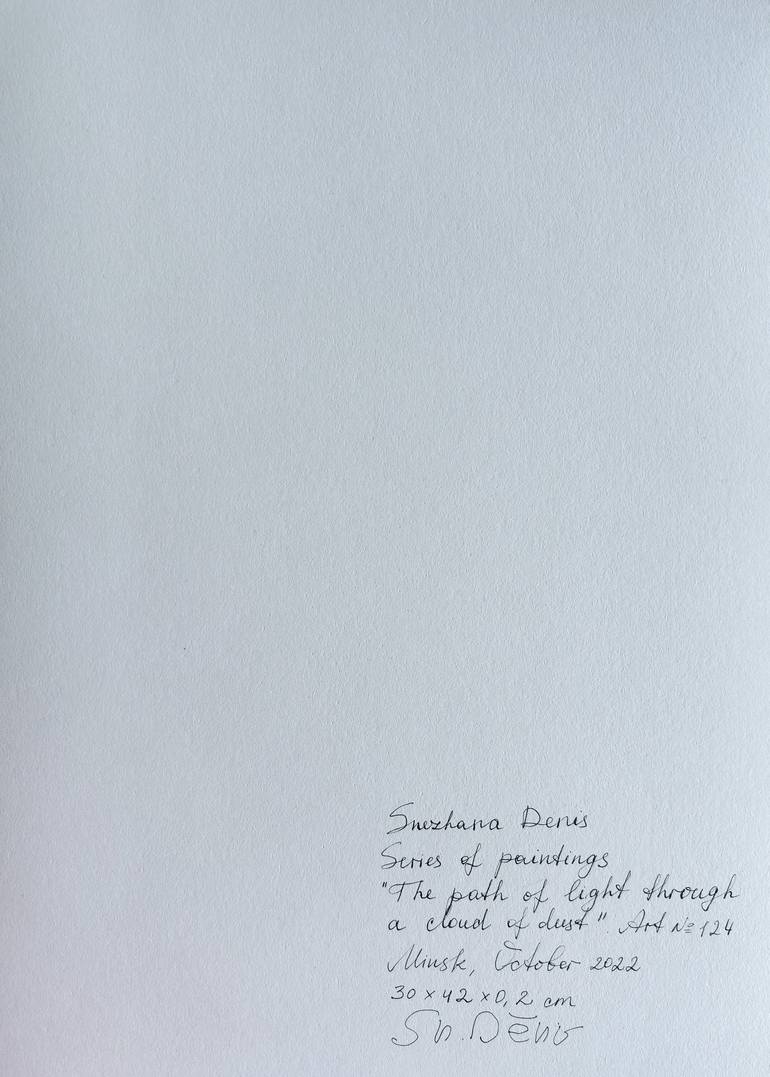 Snezhana Denis
Series of paintings
"The path of light through
a cloud of dust". Art №124
Minsk, October 2022
30 x 42 x 0,2 cm
Sn. Denis